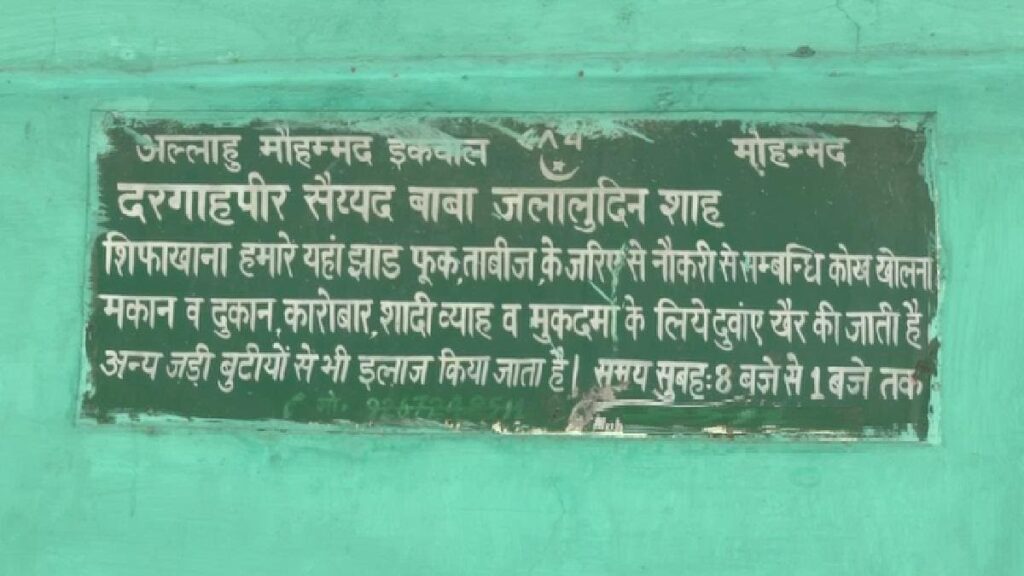 अल्लाहु मौहम्मद इकबाल ७८६ मौहम्मद
दरगाहपीर सैय्यद बाबा जलालुदिन शाह
शिफाखाना हमारे यहां झाड फूक,ताबीज,के जरिए से नौकरी से सम्बन्धि कोख खोलना
मकान व दुकान,कारोबार,शादी व्याह व मुकदमों के लिये दुवांए खैर की जाती है
अन्य जड़ी बुटीयों से भी इलाज किया जाता है। समय सुबह:8 बजे से 1 बजे तक
मो॰